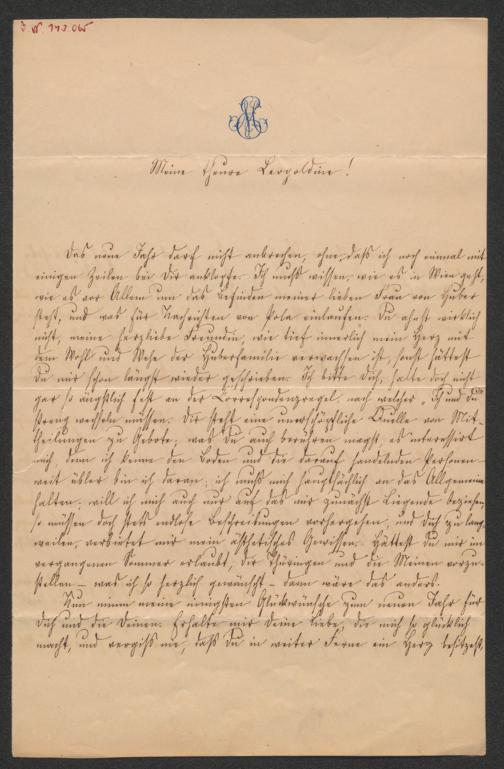 J. N. 143.065
Meine theure Leopoldine!
Das neue Jahr darf nicht anbrechen, ohne daß ich noch einmal mit
einigen Zeilen bei Dir anklopfe. Ich muß wissen, wie es in Wien geht,
wie es vor Allem um das Befinden meiner lieben Frau von Huber
steht, und was für Nachrichten von Pola einlaufen. Du ahnst wirklich
nicht, meine herzliebe Freundin, wie tief innerlich mein Herz mit
dem Wohl und Wehe der Huberfamilie verwachsen ist, sonst hättest
Du mir schon längst wieder geschrieben. Ich bitte Dich, halte doch nicht
gar so ängstlich fest an der Correspondenzregel, nach welcher „Ich und Du“
streng wechseln müssen. Dir steht eine unerschöpfliche Quelle von Mit-
theilungen zu Gebote; was Du auch berühren magst, es interessirt
mich, denn ich kenne den Boden und die darauf handelnden Personen.
weit übler bin ich daran; ich muß mich hauptsächlich an das Allgemeine
halten. will ich mich auch nur auf das mir zunächst Liegende beziehen,
so müssen doch stets endlose Beschreibungen vorhergehen, und Dich zu lang-
weilen, verbietet mir mein ästhetisches Gewissen. Hättest Du mir im
vergangenen Sommer erlaubt, Dir Thüringen und die Meinen vorzu-
stellen – was ich so herzlich gewünscht – dann wäre das anders.
Nun nimm meine innigsten Glückwünsche zum neuen Jahr für
Dich und die Deinen. Erhalte mir Deine Liebe, die mich so glücklich
macht, und vergiß nie, daß Du in weiter Ferne ein Herz besitzest,